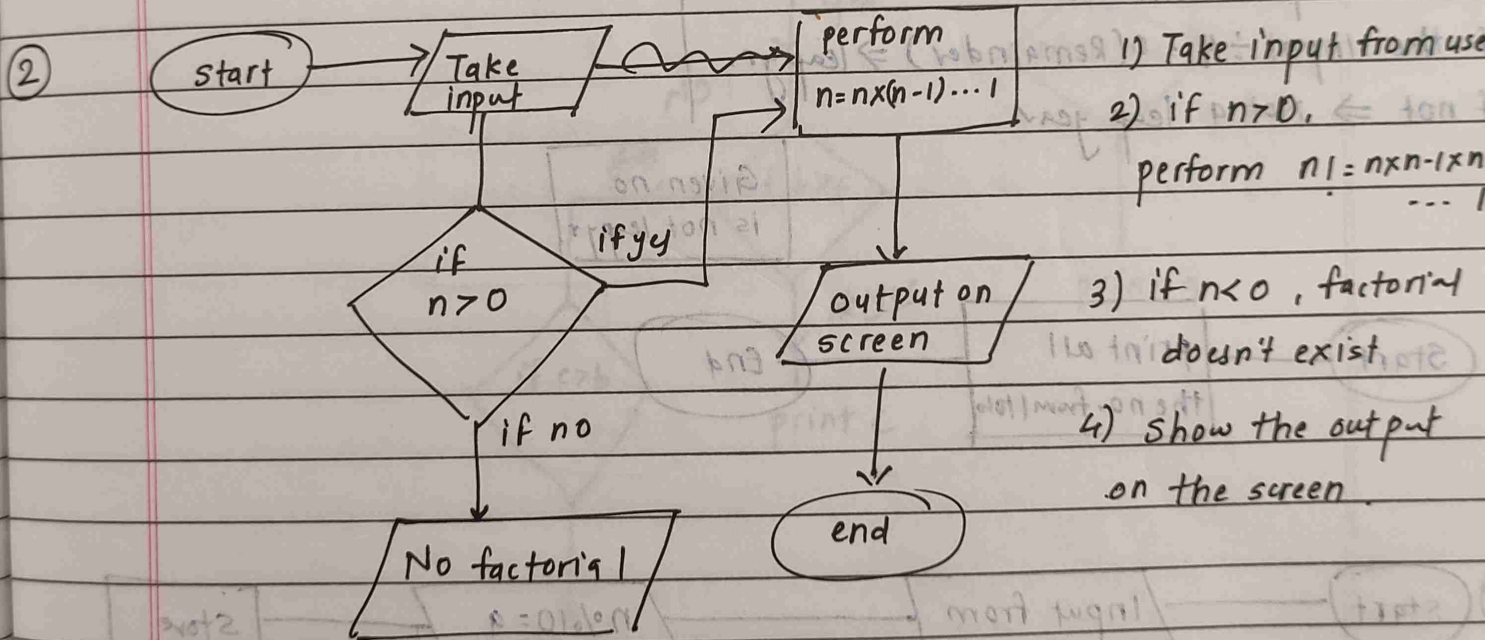 2
start
Take
input
perform
n=nx(n-1)...1
if
n>0
if yes
output on
screen
if no
end
No factorial
1) Take input from use
2) if n>0,
perform n!=nxn-1xn
... 1
3) if n<0, factorial
doesn't exist
4) Show the output
on the screen.